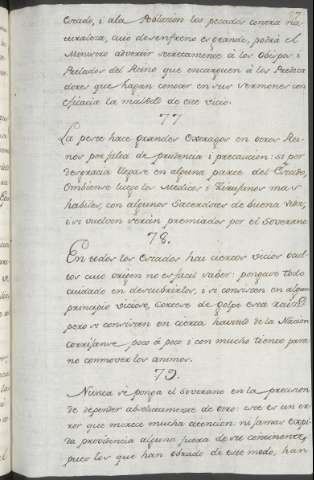 Estado, i a la Poblacion los pecados contra na
turaleza, cuio desenfreno es grande, podrá el
Ministro advertir secretamente à los Obispos i
Prelados del Reino que encarguen à los Predica
dores que hagan conocer en sus sermones con
eficacia la maldad de este vicio.
77
La peste hace grandes estragos en otros Rei-
nos por falta de prudencia i precaucion: si por
desgracia llegase en alguna parte del Estado,
embiense luego los Medicos i Zirujanos mas
habiles, con algunos Sacerdotes de buena vida,
i si vuelven serán premiados por el Soberano
78.
En todos los Estados hai ciertos vicios ocul
tos cuio origen no es facil saber: pongase todo
cuidado en descubrirlos, i si consisten en algun
principio vicioso, cortese de golpe esta raiz
pero si consisten en cierta havitud de la Nacion
corrijanse poco à poco i con mucho tiento para
no conmover los animos.
79.
Nunca se ponga el Soberano en la precision
de depender absolutamente de otro: este es un er
ror que merece mucha atencion ni jamas expi
da providencia alguna fuera de su
pues los que han obrado de este modo, han